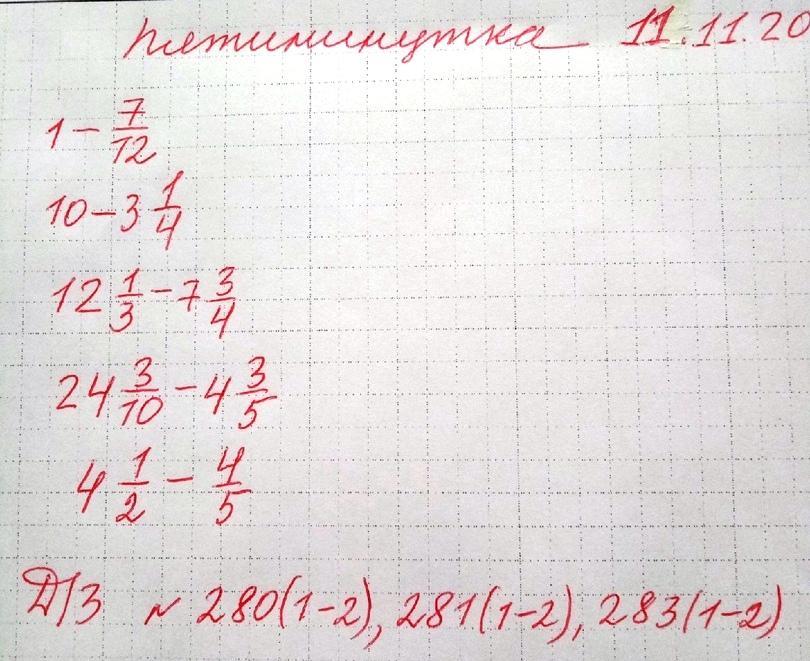 Пятиминутка 11.11.20
1 - 7/12
10 - 3 1/4
12 1/3 - 7 3/4
24 3/10 - 4 3/5
4 1/2 - 4/5
Д/З № 280(1-2), 281(1-2), 283(1-2)